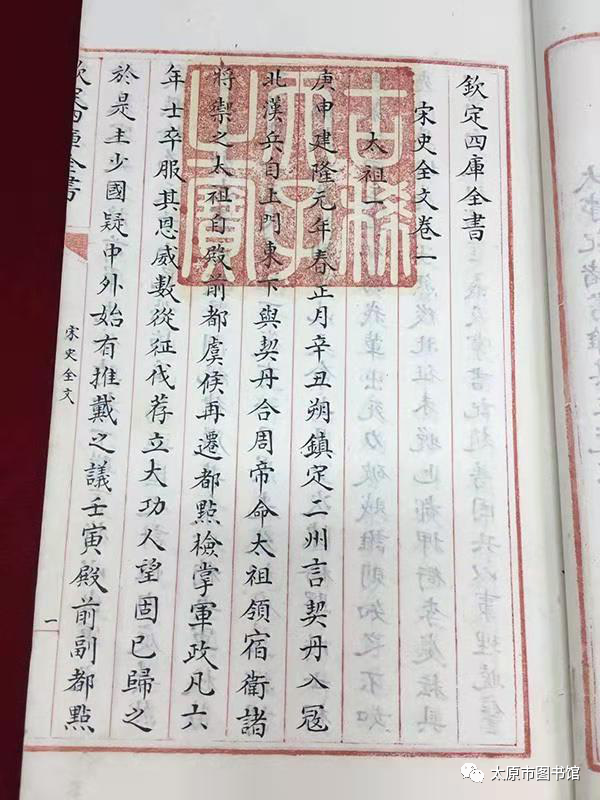 欽定四庫全書
宋史全文卷一
太祖一
庚申建隆元年春正月辛丑朔鎮定二州言契丹入冦
北漢兵自土門東下與契丹合周帝命太祖領宿衛諸
將禦之太祖自殿前都虞候再遷都點檢掌軍政凡六
年士卒服其恩威數從征伐荐立大功人望固已歸之
於是主少國疑中外始有推戴之議壬寅殿前副都點
欽定四庫全書
宋史全文
一
古稀天子之寶
太原市图书馆